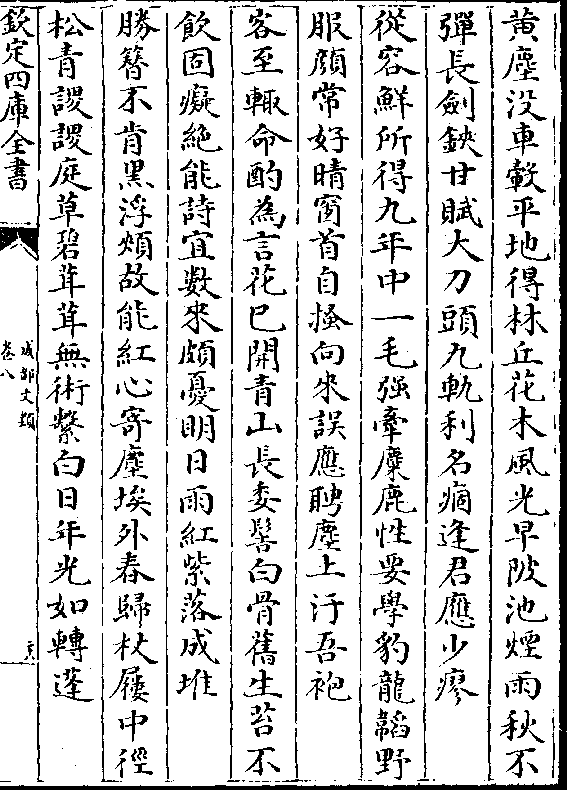 黄塵没車轂平地得林丘花木風光早陂池煙雨秋不
彈長劍鋏甘賦大刀頭九軌利名痼逢君應少瘳
從容鮮所得九年中一毛强牽麋鹿性要學豹龍韜野
服頗常好晴窗首自搔向來誤應聘塵上汙吾袍
客至輙命酌為言花已開青山長委髻白骨舊生苔不
飲固癡絶能詩宜數來頗憂明日雨紅紫落成堆
勝簪不肯黒浮頰故能紅心寄塵埃外春歸杖屨中徑
松青謖謖庭草碧茸茸無術縶白日年光如轉蓬
欽定四庫全書
成都文類
卷八